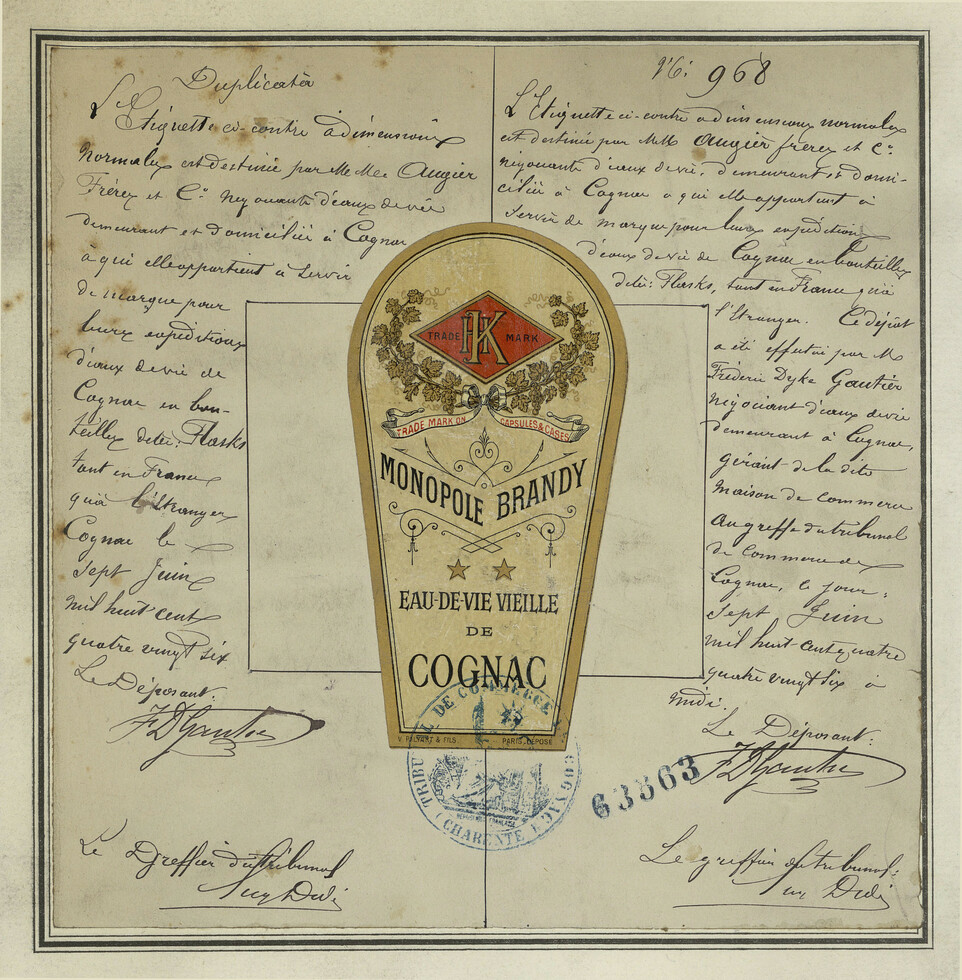 Duplicata
L'Etiquette ci-contre a dimensions
normales est destinée par M M Augier
Frères et Cie Négociants d'eaux de vie
demeurant et domiciliés à Cognac
à qui elle appartient à servir
de marque pour
leurs expéditions
d'eaux de vie de
Cognac en bou-
teilles dites: Flasks
tant en France
qu'à l'Etranger
Cognac le
sept Juin
mil huit cent
quatre vingt six
Le Déposant:
F D Gautier
Le Greffier du tribunal
No: 968
L'Etiquette ci-contre a dimensions normales
est destinée par M M Augier frères et Cie
négociants d'eaux de vie, demeurant et domi-
ciliés à Cognac à qui elle appartient à
servir de marque pour leurs expéditions
d'eaux de vie de Cognac en bouteilles
dites: Flasks, tant en France qu'à
l'Etranger. Ce dépôt
a été effectué par M
Fréderic Dyke Gautier
négociant d'eaux de vie
demeurant à Cognac,
gérant de la dite
maison de commerce
au greffe du tribunal
de commerce de
Cognac, le jour:
sept Juin
mil huit cent quatre
quatre vingt six à
midi.
Le Déposant:
F D Gautier
Le greffier du tribunal:
TRADE MARK
TRADE MARK ON CAPSULES & CASES
MONOPOLE BRANDY
EAU-DE-VIE VIEILLE
DE
COGNAC
V. PALYART & FILS PARIS, DÉPOSÉ
TRIBUNAL DE COMMERCE COGNAC
(CHARENTE)
63863